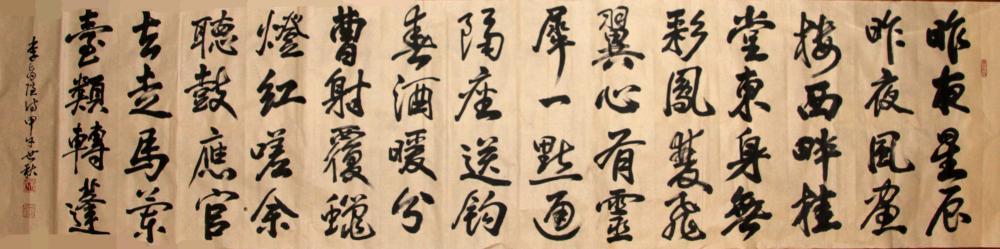 昨夜星辰
昨夜風畫
楼西畔桂
堂東身無
彩鳳雙飛
翼心有靈
犀一點通
隔座送鈎
春酒暖分
曹射覆蠟
燈紅嗟余
聽鼓應官
去走馬蘭
臺類轉蓬
李商隐诗甲午世秋